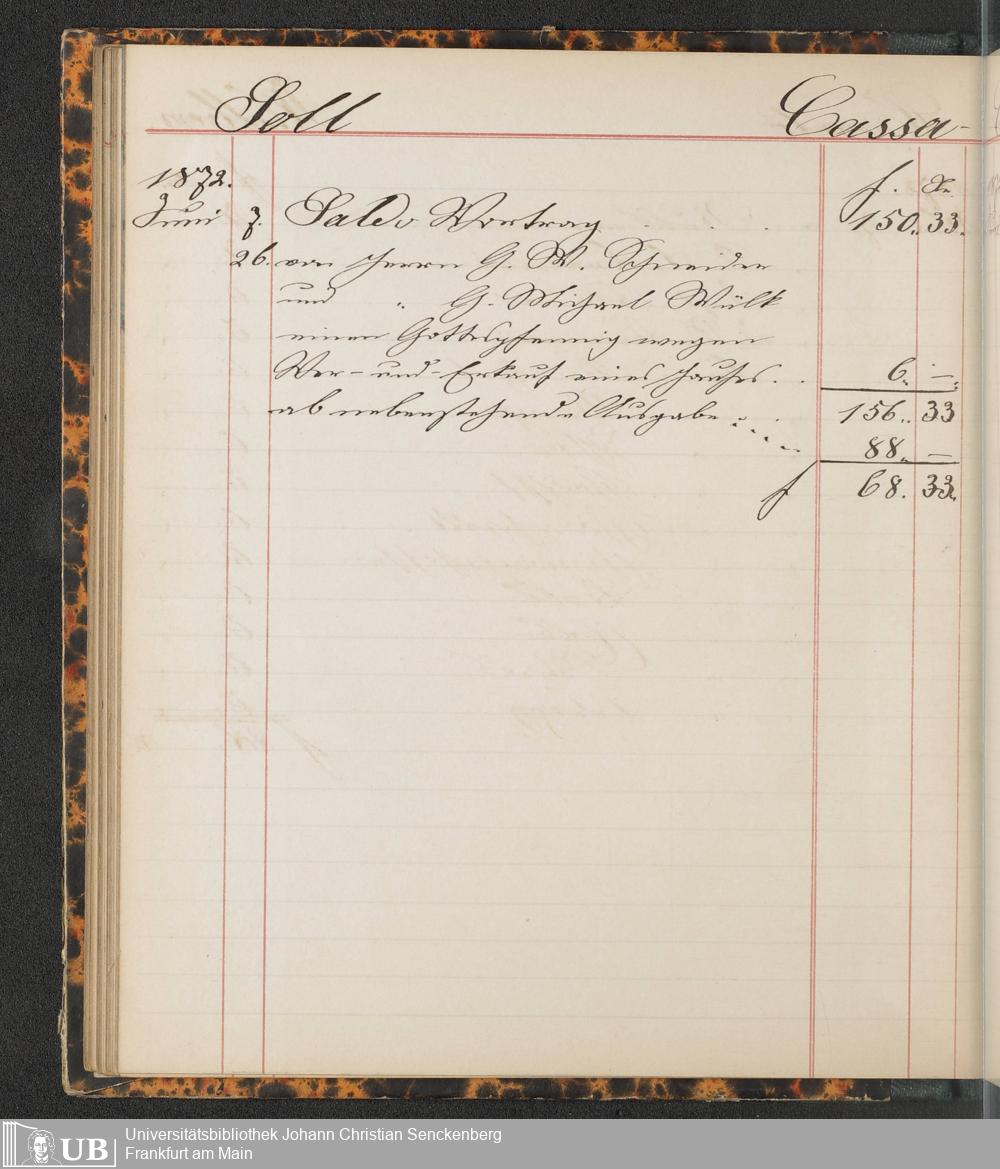 Soll Cassa-
1872. f. Kr.
Juni 7. Saldo Vortrag . . . 150. 33.
26. von Herrn G. W. Schneider
und " G. Michael Wülk
einen Gottespfennig wegen
Ver- und Erkauf eines Hauses . . 6. —
ab nebenstehende Ausgabe 156. 33
88. —
f 68. 33.
UB Universitätsbibliothek Johann Christian Senckenberg
Frankfurt am Main